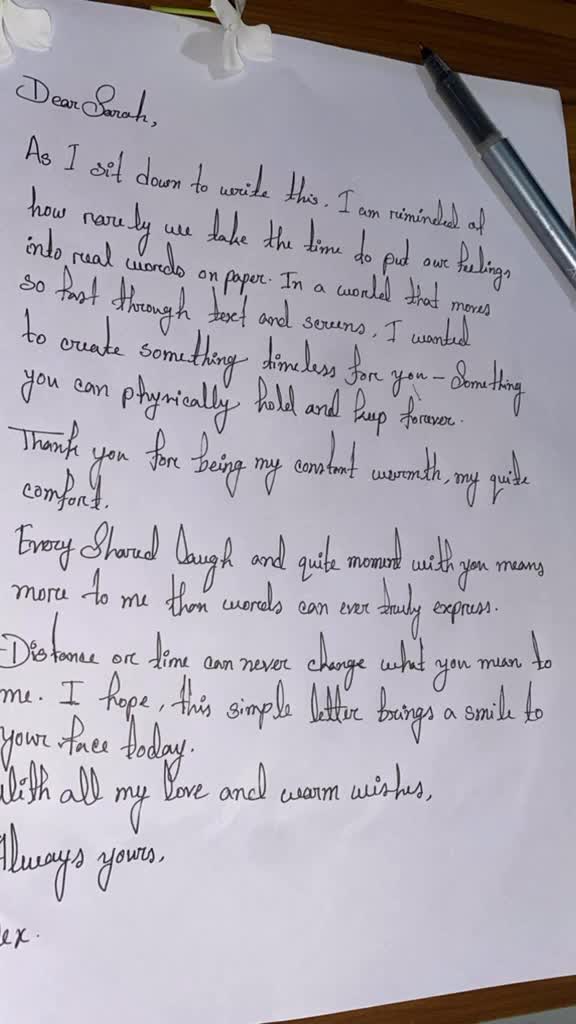 Dear Sarah,
As I sit down to write this, I am reminded of
how rarely we take the time to put our feelings
into real words on paper. In a world that moves
so fast through text and screens, I wanted
to create something timeless for you - Something
you can physically hold and keep forever.
Thank you for being my constant warmth, my quite
comfort.
Every Shared laugh and quite moment with you means
more to me than words can ever truly express.
Distance or time can never change what you mean to
me. I hope, this simple letter brings a smile to
your face today.
With all my love and warm wishes,
Always yours,
ex.